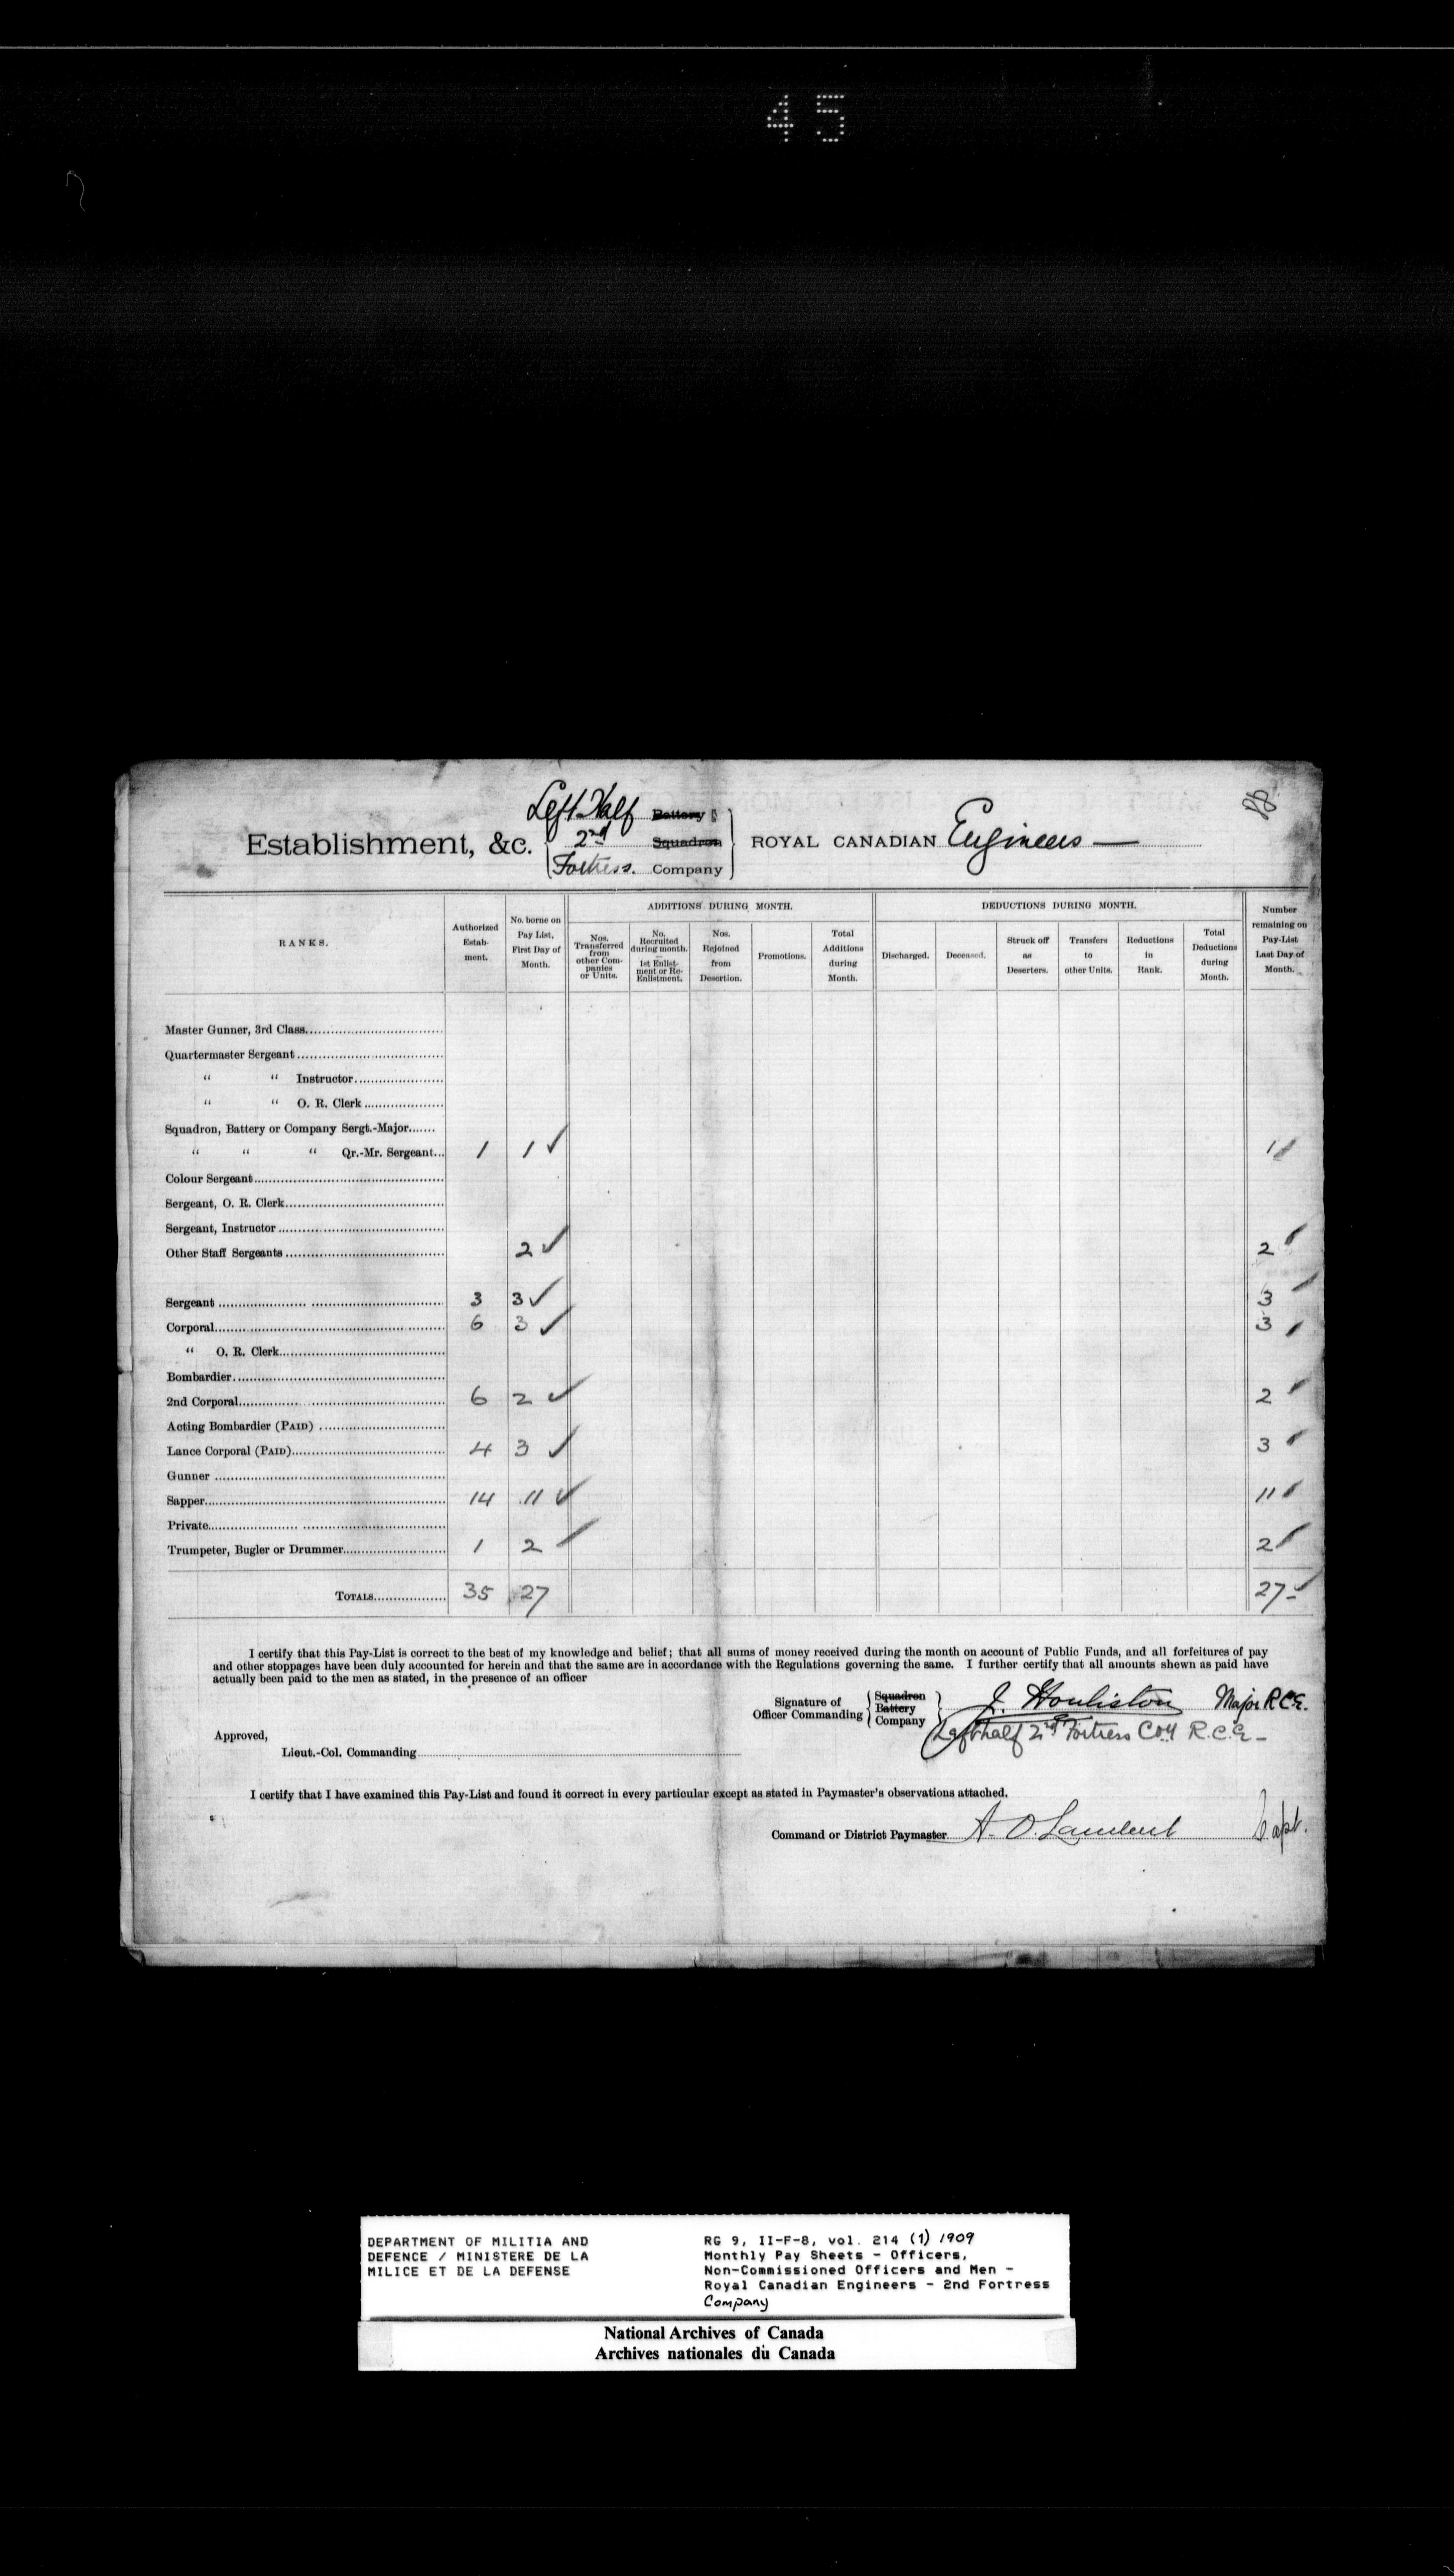 45
Left Half Battery
Establishment, &c. 2nd Squadron ROYAL CANADIAN Engineers
Fortress. Company
RANKS. Authorized Estab- ment. No. borne on Pay List, First Day of Month. ADDITIONS DURING MONTH. Nos. Transferred from other Com- panies or Units. No. Recruited during month. 1st Enlist- ment or Re- Enlistment. Nos. Rejoined from Desertion. Promotions. Total Additions during Month. DEDUCTIONS DURING MONTH. Discharged. Deceased. Struck off as Deserters. Transfers to other Units. Reductions in Rank. Total Deductions during Month. Number remaining on Pay-List Last Day of Month.
Master Gunner, 3rd Class
Quartermaster Sergeant
" " Instructor
" " O. R. Clerk
Squadron, Battery or Company Sergt.-Major
" " " Qr.-Mr. Sergeant... 1 1 ✓ 1
Colour Sergeant
Sergeant, O. R. Clerk
Sergeant, Instructor
Other Staff Sergeants 2 ✓ 2
Sergeant 3 3 ✓ 3
Corporal 6 3 ✓ 3
" O. R. Clerk
Bombardier
2nd Corporal 6 2 ✓ 2
Acting Bombardier (PAID)
Lance Corporal (PAID) 4 3 ✓ 3
Gunner
Sapper 14 11 ✓ 11
Private
Trumpeter, Bugler or Drummer 1 2 2
TOTALS 35 27 27
I certify that this Pay-List is correct to the best of my knowledge and belief; that all sums of money received during the month on account of Public Funds, and all forfeitures of pay
and other stoppages have been duly accounted for herein and that the same are in accordance with the Regulations governing the same. I further certify that all amounts shewn as paid have
actually been paid to the men as stated, in the presence of an officer
Signature of Officer Commanding Squadron Battery Company J. Houliston Major R.C.E.
Left half 2nd Fortress Coy R.C.E.
Approved,
Lieut.-Col. Commanding
I certify that I have examined this Pay-List and found it correct in every particular except as stated in Paymaster's observations attached.
Command or District Paymaster A. O. Lambert Capt.
DEPARTMENT OF MILITIA AND
DEFENCE / MINISTERE DE LA
MILICE ET DE LA DEFENSE
RG 9, II-F-8, vol. 214 (1) 1909
Monthly Pay Sheets - Officers,
Non-Commissioned Officers and Men -
Royal Canadian Engineers - 2nd Fortress
Company
National Archives of Canada
Archives nationales du Canada